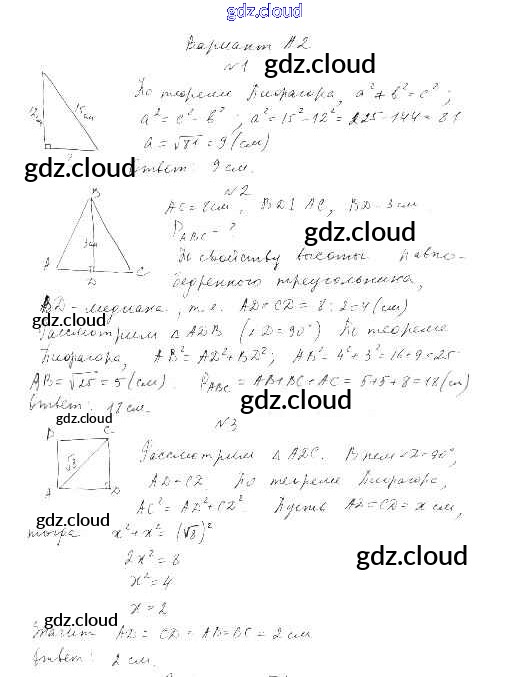 gdz.cloud
Вариант А2
№1
gdz.cloud
12 см
15 см
?
По теореме Пифагора, a² + b² = c² ;
a² = c² - b² ; a² = 15² - 12² = 225 - 144 = 81
a = √81 = 9 (см)
gdz.cloud
Ответ: 9 см.
№2
AC = 8 см, BD ⊥ AC, BD - 3 см.
P ABC - ?
gdz.cloud
B
3 см
A
D
C
По свойству высоты равно-
бедренного треугольника,
BD - медиана, т.е. AD = CD = 8 : 2 = 4 (см)
gdz.cloud
Рассмотрим △ ADB (∠D = 90°) По теореме
Пифагора, AB² = AD² + BD²; AB² = 4² + 3² = 16 + 9 = 25
AB = √25 = 5 (см). P ABC = AB + BC + AC = 5 + 5 + 8 = 18 (см)
gdz.cloud
Ответ: 18 см.
№3
B
C
√8
A
D
Рассмотрим △ ADC. В нем ∠D = 90°,
AD = CD По теореме Пифагора,
AC² = AD² + CD². Пусть AD = CD = x см,
gdz.cloud
тогда x² + x² = (√8)²
2x² = 8
gdz.cloud
x² = 4
x = 2
gdz.cloud
Значит AD = CD = AB = BC = 2 см
Ответ: 2 см.